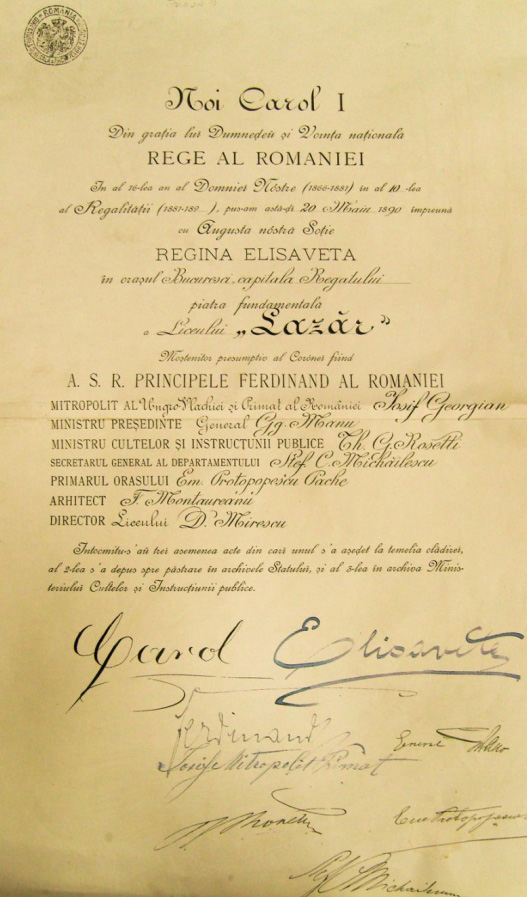 ROMANIA
Noi Carol I
Din grația lui Dumnedeu și Voința națională
REGE AL ROMANIEI
In al 16-lea an al Domniei Nóstre (1866-1881) in al 10-lea
al Regalităței (1881-189...), pus-am astă-ḑi 20 Maiu 1890 împreună
cu Augusta nóstră Soție
REGINA ELISAVETA
în orașul Bucuresci, capitala Regatului
piatra fundamentală
a Liceului „Lazăr”
Moștenitor presumptiv al Coronei fiind
A. S. R. PRINCIPELE FERDINAND AL ROMANIEI
MITROPOLIT AL Ungro-Vlachiei și Primat al României Iosif Georgian
MINISTRU PREȘEDINTE General Gg. Manu
MINISTRU CULTELOR ȘI INSTRUCȚIUNII PUBLICE Th. G. Rosetti
SECRETARUL GENERAL AL DEPARTAMENTULUI Stef. C. Michăilescu
PRIMARUL ORASULUI Em. Protopopescu Pache
ARHITECT F. Montaureanu
DIRECTOR Liceului D. Mirescu
Intocmitu-s'aŭ trei asemenea acte din cari unul s'a așeḑat la temelia clădirei,
al 2-lea s'a depus spre păstrare în archivele Statului, și al 3-lea în archiva Minis-
teriului Cultelor și Instrucțiunii publice.
Carol Elisaveta
Ferdinand
General Manu
Iosif Mitropolit Primat